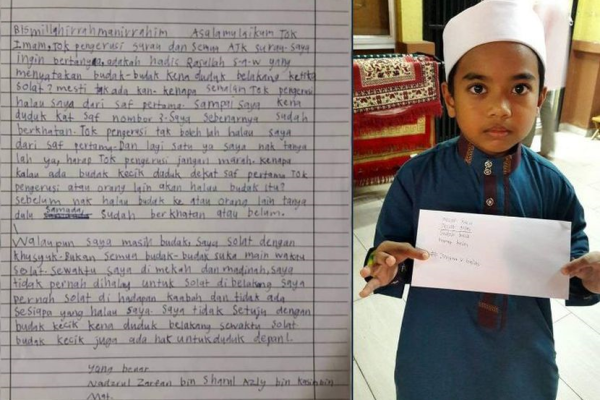 Bismillahirrahmanirrahim Asalamulaikum Tok
Imam, Tok pengerusi surau dan semua AJK surau. Saya
ingin bertanya, adakah hadis Rasullah S.a.w yang
menyatakan budak-budak kena duduk belakang ketika
solat? mesti tak ada kan. kenapa semalam Tok pengerusi
halau saya dari saf pertama sampai saya kena
duduk kat saf nombor 3. Saya sebenarnya sudah
berkhatan. Tok pengerusi tak boleh lah halau saya
dari saf pertama. Dan lagi satu ya saya nak tanya
lah ya, harap Tok pengerusi jangan marah. kenapa
kalau ada budak kecik duduk dekat saf pertama Tok
pengerusi atau orang lain akan halau budak itu?
sebelum nak halau budak ke atau orang lain tanya
dulu samada sudah berkhatan atau belum.
Walaupun saya masih budak. Saya solat dengan
khusyuk. Bukan semua budak-budak suka main waktu
solat. sewaktu saya di mekah dan madinah, saya
tidak pernah dihalau untuk solat di belakang. saya
pernah solat di hadapan kaabah dan tidak ada
sesiapa yang halau saya. Saya tidak setuju dengan
budak kecik kena duduk belakang sewaktu solat
budak kecik juga ada hak untuk duduk depan!.
Yang benar
bin Sharul Azly bin